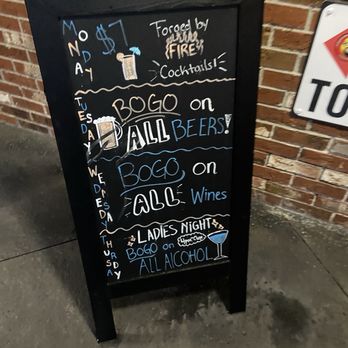 MONDAY
$7
Forged by
FIRE
Cocktails!
TUESDAY
BOGO on
ALL BEERS!
WEDNESDAY
BOGO on
ALL Wines
THURSDAY
LADIES NIGHT
BOGO on
ALL ALCOHOL
TO